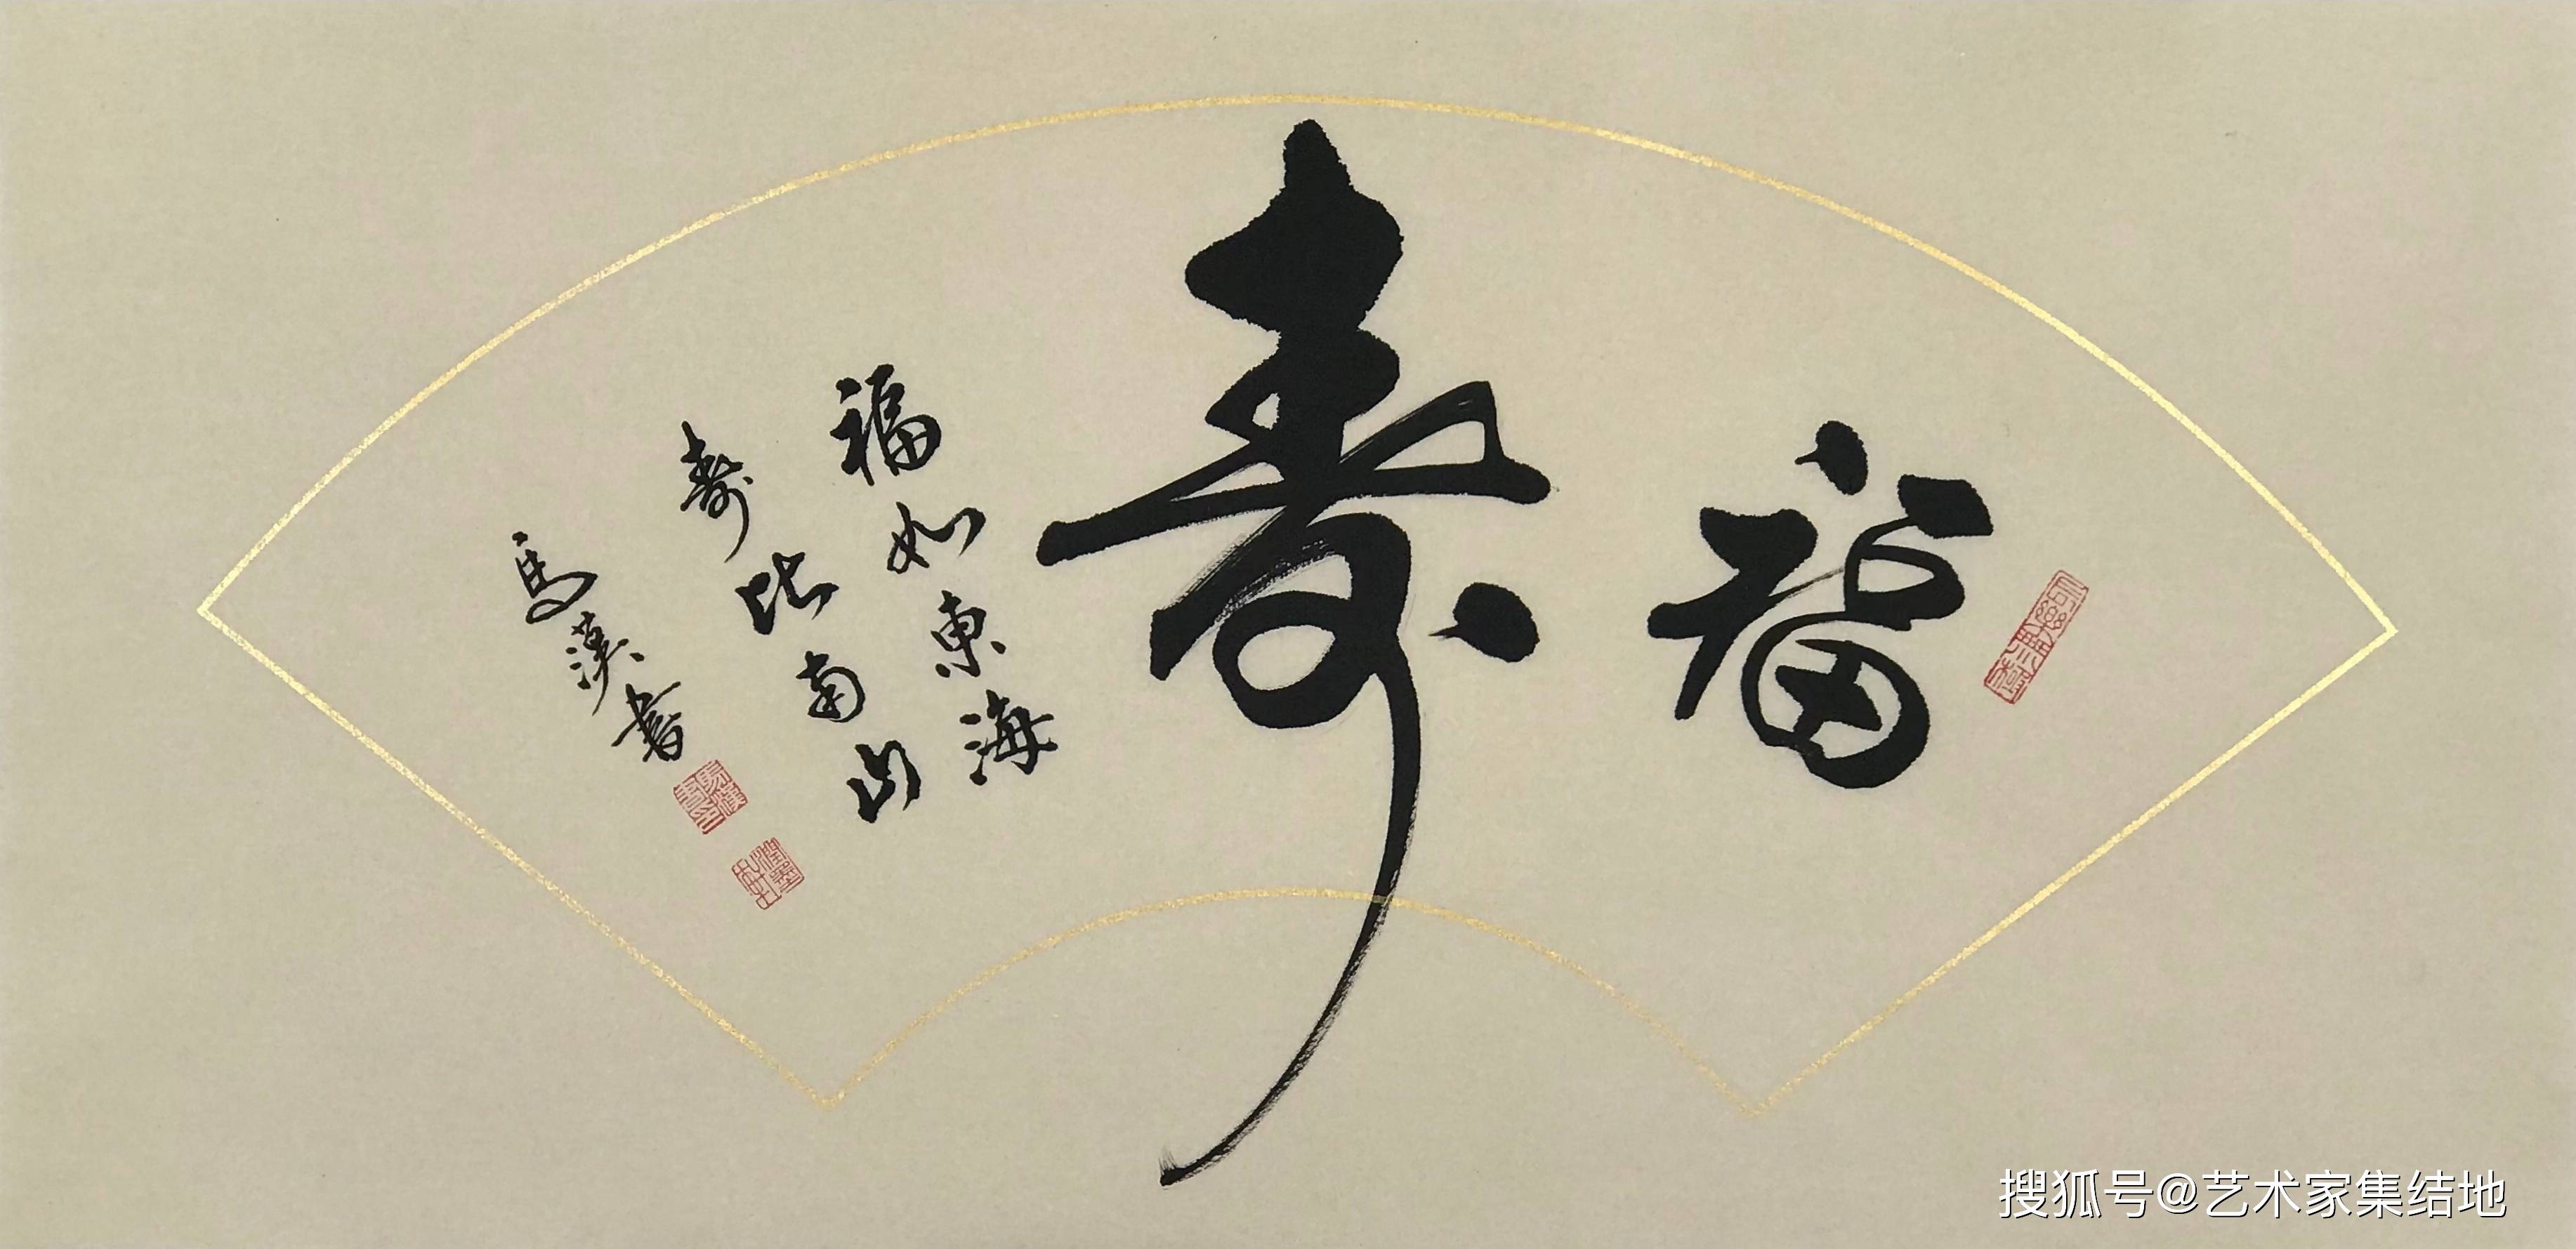 福寿
福如東海
寿比南山
馬漢書
搜狐号@艺术家集结地